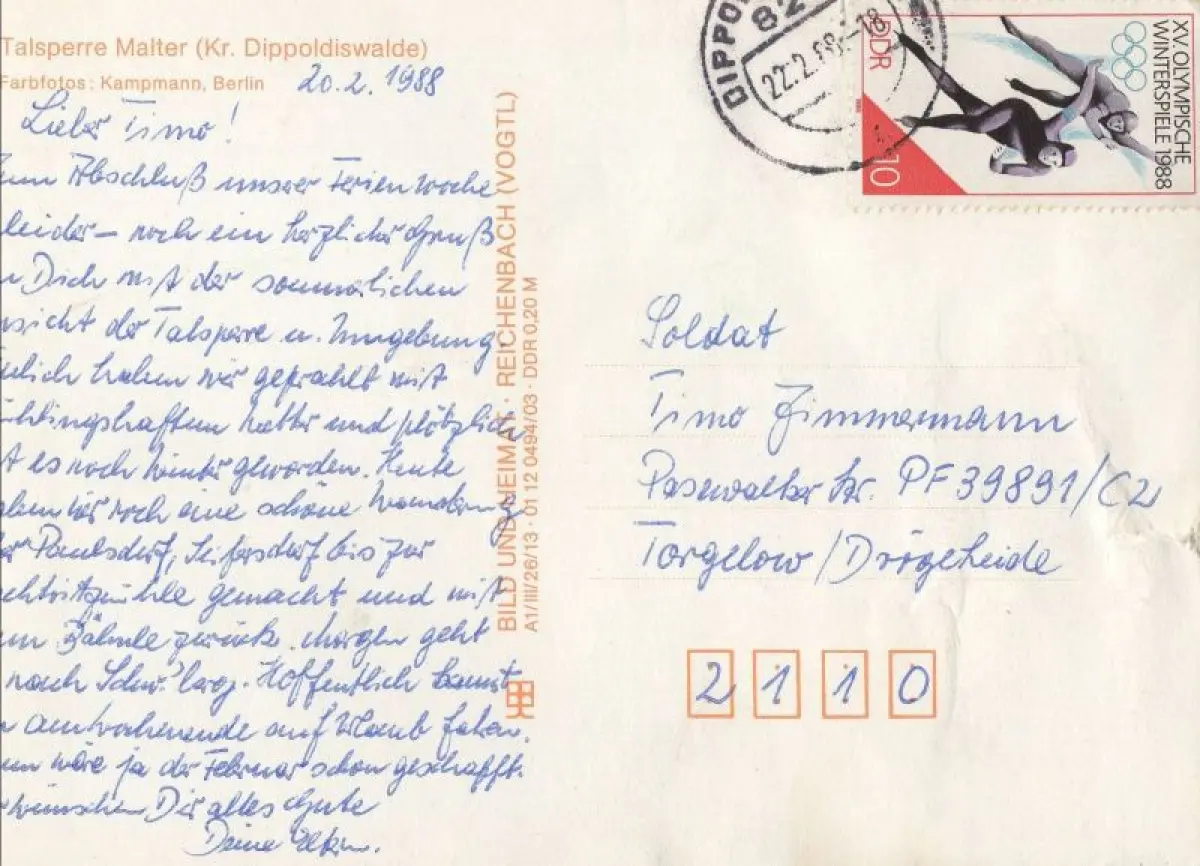 Talsperre Malter (Kr. Dippoldiswalde)
Farbfotos: Kampmann, Berlin
20.2.1988
Lieber Timo!
zum Abschluß unserer Ferienwoche
leider – noch ein herzlicher Gruß
n Dich mit der sommerlichen
nsicht der Talsperre u. Umgebung.
haben wir geprahlt mit
ühlingshaftem Wetter und plötzlich
t es noch Winter geworden. Heute
aben wir noch eine schöne Wanderung
er Paulsdorf, Seifersdorf bis zur
gemacht und mit
em Bähnle zurück. Morgen geht
nach Schw.'berg. Hoffentlich kannst
am Wochenende auf Urlaub fahren.
nn wäre ja der Februar schon geschafft.
r wünschen Dir alles Gute
Deine Eltern.
BILD UND HEIMAT · REICHENBACH (VOGTL)
A1/III/26/13 · 01 12 0494/03 · DDR 0,20 M
DIPPO
82
22.2.88-18
DDR
10
XV. OLYMPISCHE
WINTERSPIELE 1988
Soldat
Timo Zimmermann
Pasewalker Str. PF 39891/C2
Torgelow/Drögeheide
2110